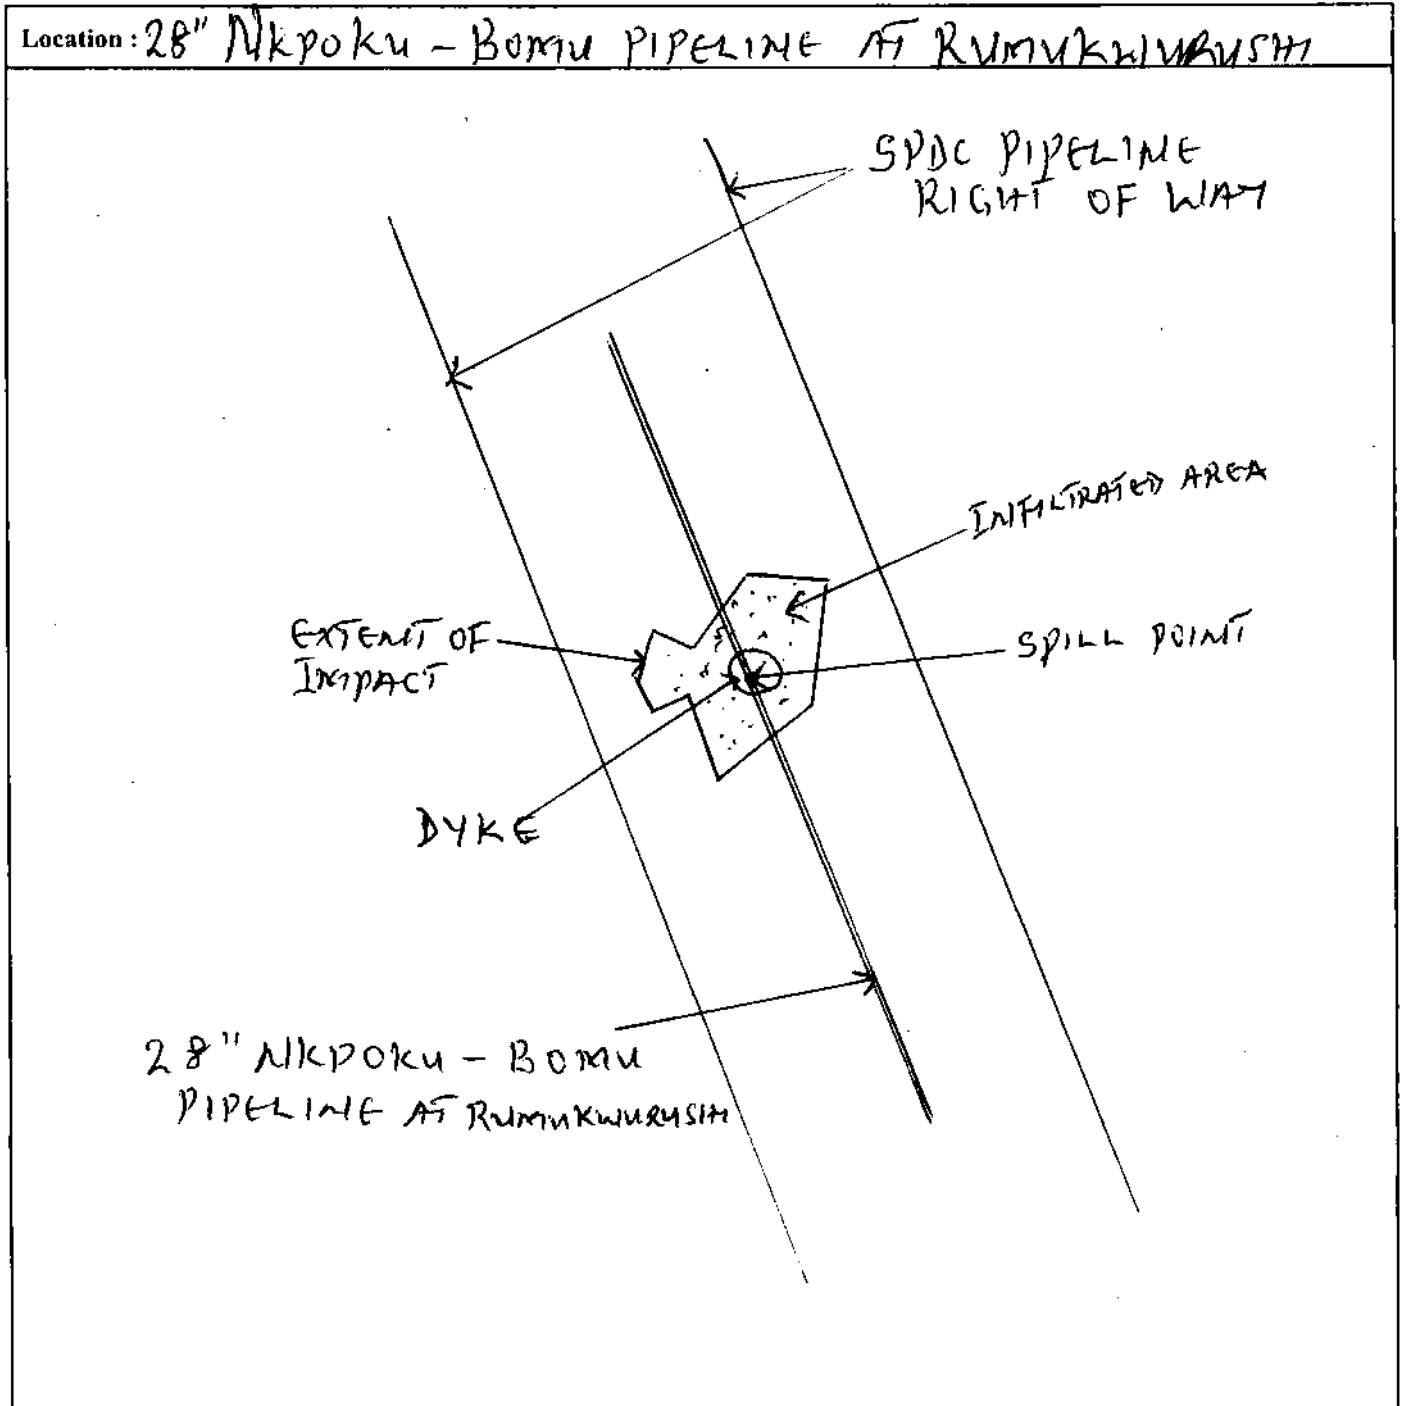 Location : 28" NKPOKU - BOMU PIPELINE AT RUMUKWURUSHI
SPDC PIPELINE
RIGHT OF WAY
INFILTRATED AREA
EXTENT OF
IMPACT
SPILL POINT
DYKE
28" NKPOKU - BOMU
PIPELINE AT RUMUKWURUSHI